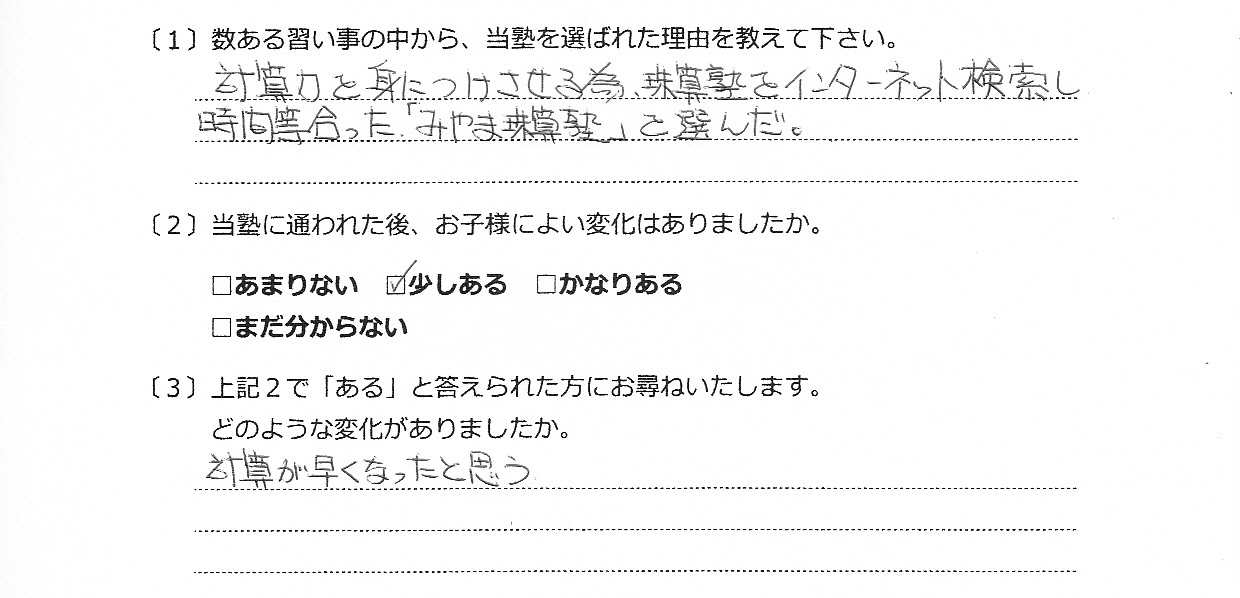 〔１〕数ある習い事の中から、当塾を選ばれた理由を教えて下さい。
計算力を身につけさせる為、珠算塾をインターネット検索し
時間等合った「みやま珠算塾」を選んだ。
〔２〕当塾に通われた後、お子様によい変化はありましたか。
□あまりない ☑少しある □かなりある
□まだ分からない
〔３〕上記２で「ある」と答えられた方にお尋ねいたします。
どのような変化がありましたか。
計算が早くなったと思う